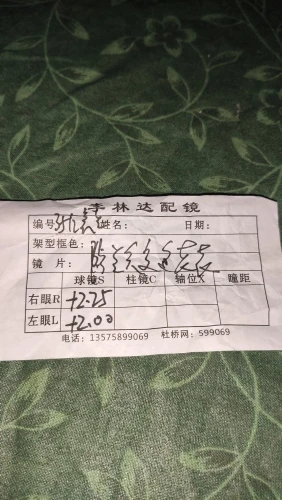 李林达配镜
编号 姓名: 日期:
架型框色:
镜 片:
球镜S 柱镜C 轴位X 瞳距
右眼R +2.25
左眼L +2.00
电话: 13575899069 杜桥网: 599069